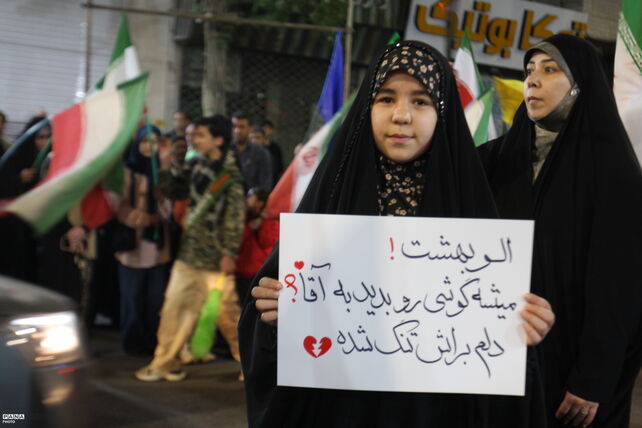 تکا بوتیک
الو بهشت !
میشه گوشی رو بدید به آقا؟
دلم براش تنگ شده
PANA
PHOTO